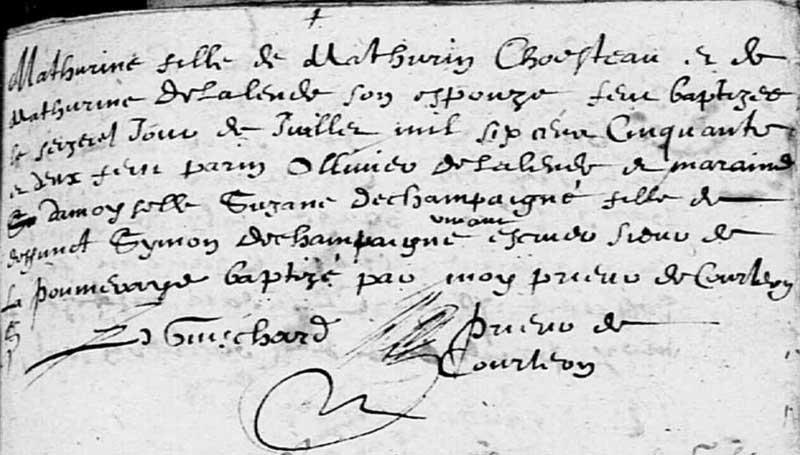 Mathurine fille de Mathurin Choesteau et de
Mathurine Delalende son espouze feut baptizée
le sezeiesl Jour de Juillet mil six cens Cinquante
et deux feut parin Ollivier Delalende et maraine
damoyselle Suzane dechampaigné fille de
deffunct Symon dechampaigne vivant escuier sieur de
la pommeraye baptizé par moy prieur de Courleon
Guischard prieur de
Courleon